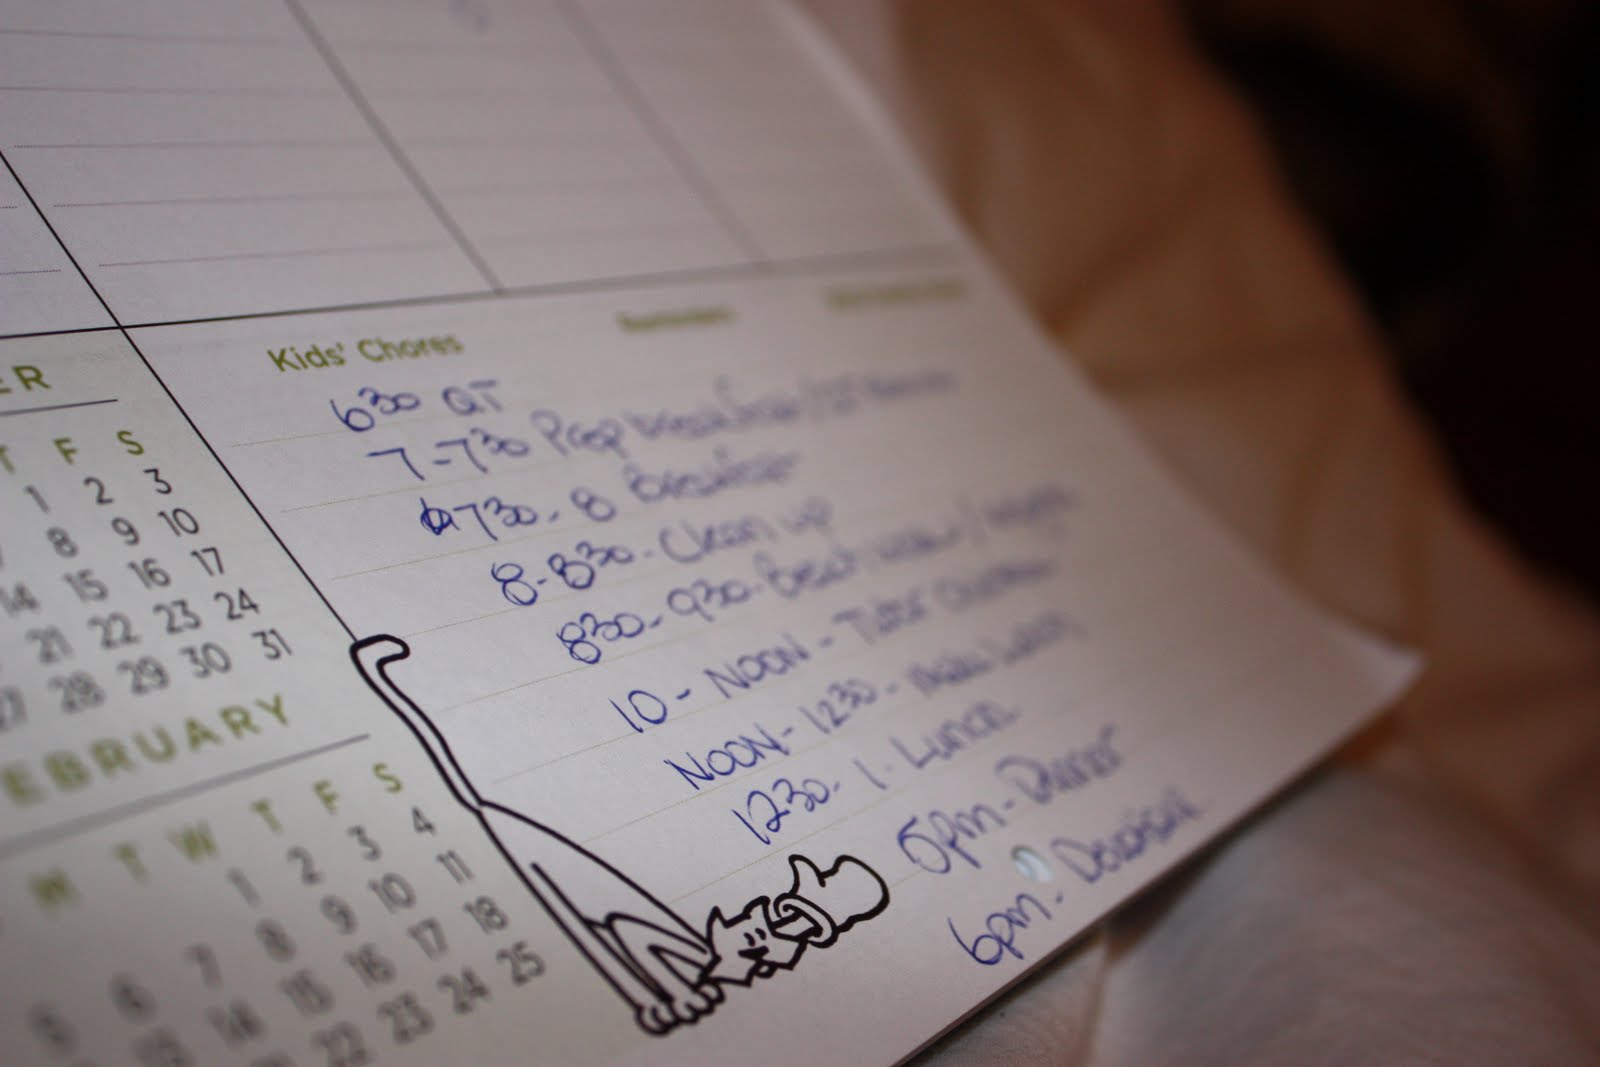 ER
T F S
1 2 3
8 9 10
14 15 16 17
21 22 23 24
27 28 29 30 31
EBRUARY
M T W T F S
1 2 3 4
5 6 7 8 9 10 11
13 14 15 16 17 18
22 23 24 25
Kids' Chores
Reminders
630 QT
7-730 Prep breakfast/
730-8 Breakfast
8-830-Clean up
830-930-
10-NOON-
NOON-1230-Make Lunch
1230-1-Lunch
5pm-Dinner
6pm-Devotional